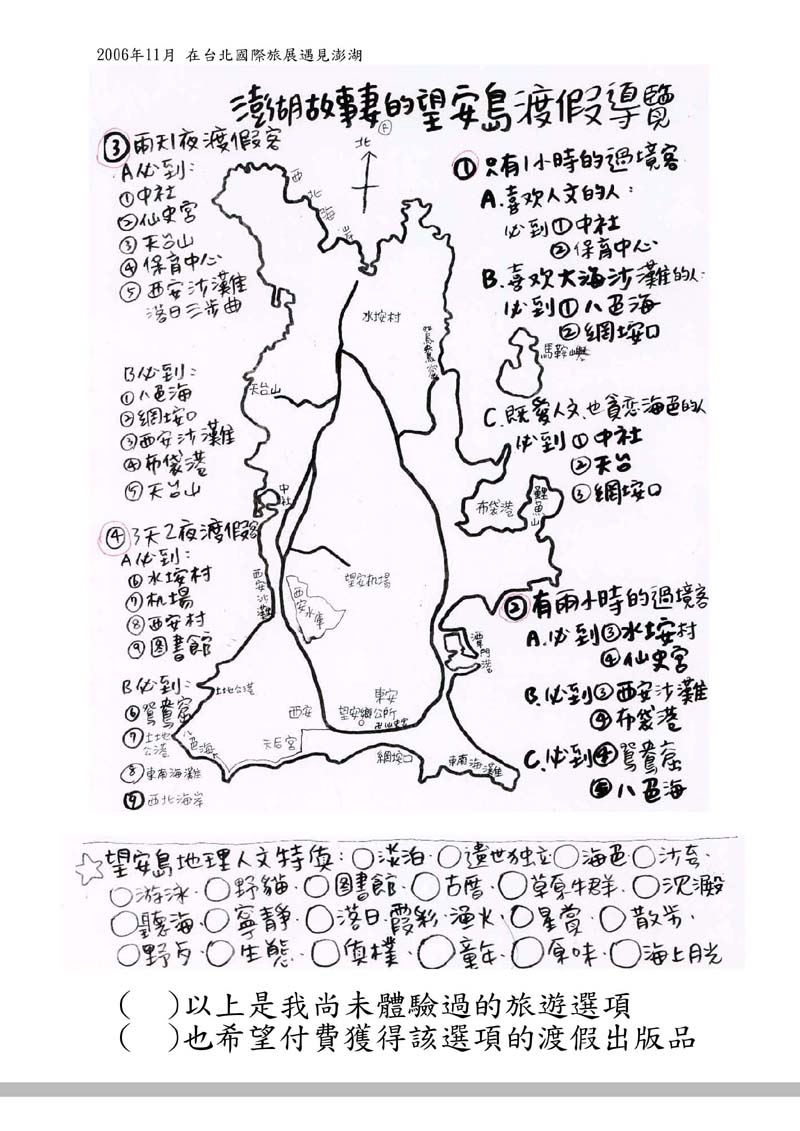 2006年11月 在台北國際旅展遇見澎湖
澎湖故事妻的望安島渡假導覽
③兩天1夜渡假客
A必到：
①中社
②仙史宮
③天台山
④保育中心
⑤西安沙灘
落日三步曲
B必到：
①八色海
②網垵口
③西安沙灘
④布袋港
⑤天台山
④3天2夜渡假客
A必到：
⑥水垵村
⑦机場
⑧西安村
⑨圖書館
B必到：
⑥鴛鴦窟
⑦土地公港
⑧東南海灘
⑨西北海岸
北
西北海岸
水垵村
鴛鴦窟
天台山
中社
西安沙灘
望安机場
西安水庫
布袋港
鯉魚山
馬鞍嶼
潭門港
土地公港
八色海
西安
天后宮
東安
望安鄉公所
仙史宮
網垵口
東南海灘
①只有1小時的過境客
A.喜欢人文的人：
必到①中社
②保育中心
B.喜欢大海沙灘的人：
必到①八色海
②網垵口
C.既愛人文、也貪恋海色的人
必到①中社
②天台
③網垵口
②有兩小時的過境客
A.必到③水垵村
④仙史宮
B.必到③西安沙灘
④布袋港
C.必到④鴛鴦窟
⑤八色海
☆望安島地理人文特質：○淡泊．○遺世独立○海色．○沙奔．
○游泳．○野貓．○圖書館．○古厝．○草原牛群．○沉澱
○聽海．○寧靜．○落日．霞彩．漁火．○星賞．○散步．
○野台．○生態．○質樸．○童年．○原味．○海上月光
(　)以上是我尚未體驗過的旅遊選項
(　)也希望付費獲得該選項的渡假出版品